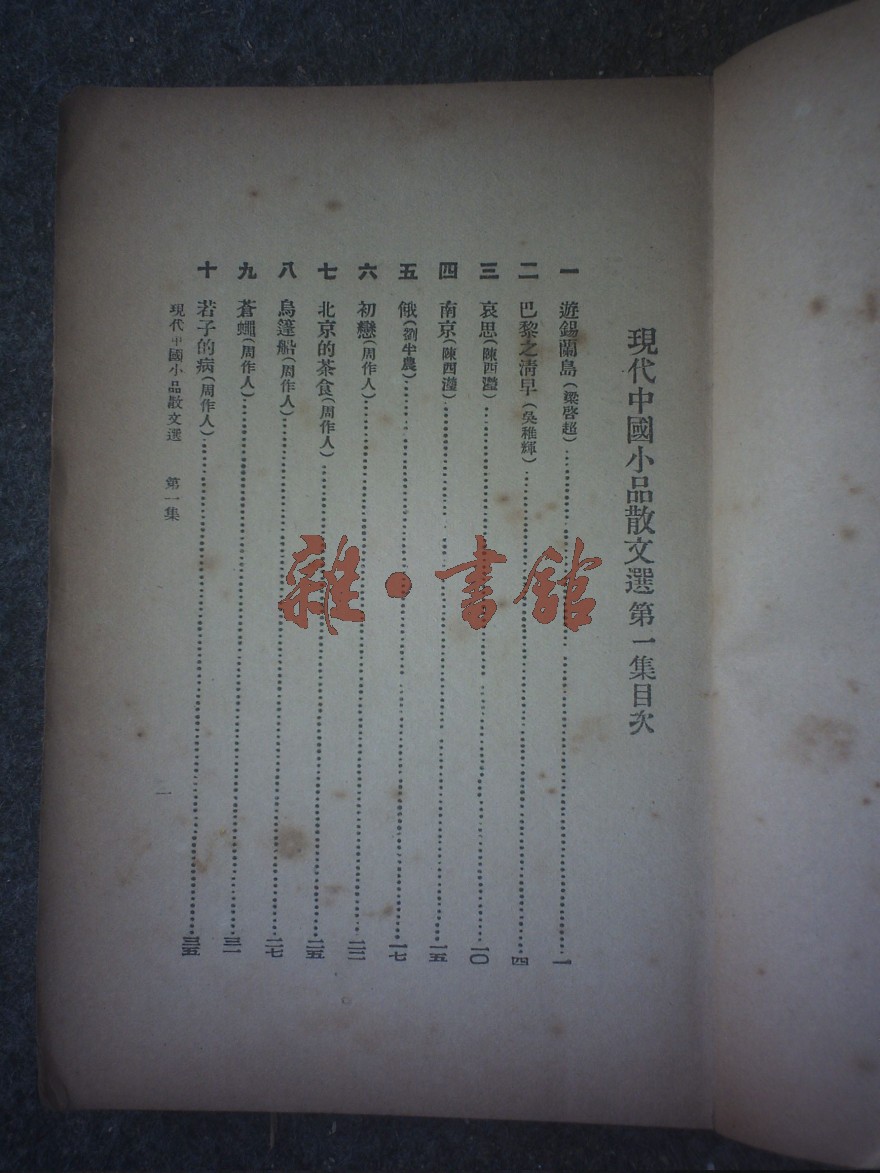 現代中國小品散文選 第一集目次
一 遊錫蘭島(梁啓超)……一
二 巴黎之清早(吳稚輝)……四
三 哀思(陳西瀅)……一〇
四 南京(陳西瀅)……一五
五 餓(劉半農)……一七
六 初戀(周作人)……二二
七 北京的茶食(周作人)……二五
八 烏篷船(周作人)……二七
九 蒼蠅(周作人)……三一
十 若子的病(周作人)……三五
現代中國小品散文選 第一集
一
雜·書館